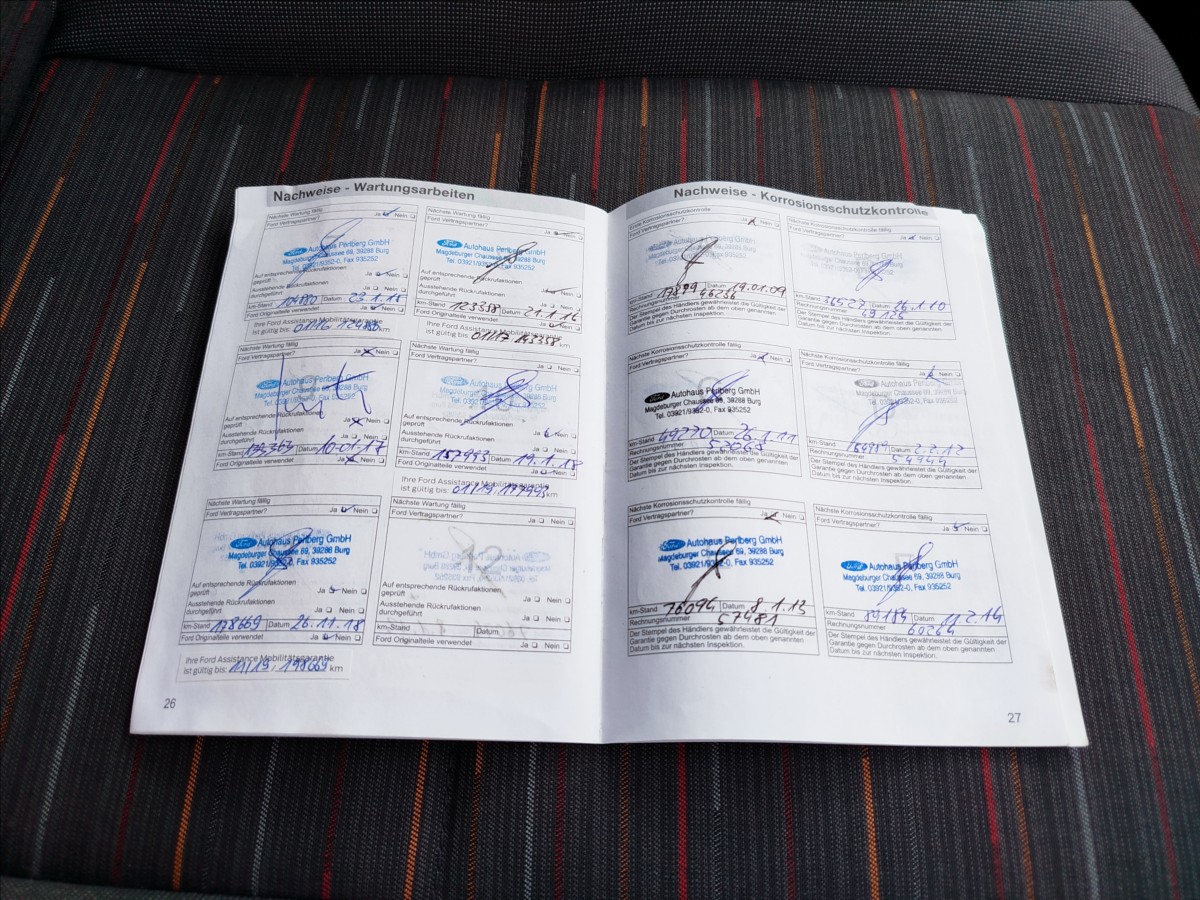 Nachweise - Wartungsarbeiten
Nächste Wartung fällig
Ford Vertragspartner? Ja Nein
Ford Autohaus Perlberg GmbH
Magdeburger Chaussee 69, 39288 Burg
Tel. 03921/9352-0, Fax 935252
Auf entsprechende Rückrufaktionen
geprüft Ja Nein
Ausstehende Rückrufaktionen
durchgeführt Ja Nein
km-Stand Datum 23.1.15
Ford Originalteile verwendet Ja Nein
Ihre Ford Assistance Mobilitätsgarantie
ist gültig bis: 01/16, km
Nächste Wartung fällig
Ford Vertragspartner? Ja Nein
Ford Autohaus Perlberg GmbH
Magdeburger Chaussee 69, 39288 Burg
Tel. 03921/9352-0, Fax 935252
Auf entsprechende Rückrufaktionen
geprüft
Ausstehende Rückrufaktionen
durchgeführt Ja Nein
km-Stand 123358 Datum 21.1.16
Ford Originalteile verwendet Ja Nein
Ihre Ford Assistance Mobilitätsgarantie
ist gültig bis: 01/17, 143358 km
Nächste Wartung fällig
Ford Vertragspartner? Ja Nein
Ford Autohaus Perlberg GmbH
Magdeburger Chaussee 69, 39288 Burg
Tel. 03921/9352-0, Fax 935252
Auf entsprechende Rückrufaktionen
geprüft Ja Nein
Ausstehende Rückrufaktionen
durchgeführt Ja Nein
km-Stand Datum 10.01.17
Ford Originalteile verwendet Ja Nein
Nächste Wartung fällig
Ford Vertragspartner? Ja Nein
Ford Autohaus Perlberg GmbH
Magdeburger Chaussee 69, 39288 Burg
Tel. 03921/9352-0, Fax 935252
Auf entsprechende Rückrufaktionen
geprüft Ja Nein
Ausstehende Rückrufaktionen
durchgeführt Ja Nein
km-Stand 157993 Datum 19.1.18
Ford Originalteile verwendet Ja Nein
Ihre Ford Assistance Mobilitätsgarantie
ist gültig bis: 01/19, 177993 km
Nächste Wartung fällig
Ford Vertragspartner? Ja Nein
Ford Autohaus Perlberg GmbH
Magdeburger Chaussee 69, 39288 Burg
Tel. 03921/9352-0, Fax 935252
Auf entsprechende Rückrufaktionen
geprüft Ja Nein
Ausstehende Rückrufaktionen
durchgeführt Ja Nein
km-Stand 178669 Datum 26.11.18
Ford Originalteile verwendet Ja Nein
Ihre Ford Assistance Mobilitätsgarantie
ist gültig bis: 11/19, 198669 km
Nächste Wartung fällig
Ford Vertragspartner? Ja Nein
Auf entsprechende Rückrufaktionen
geprüft Ja Nein
Ausstehende Rückrufaktionen
durchgeführt Ja Nein
km-Stand Datum
Ford Originalteile verwendet Ja Nein
26
Nachweise - Korrosionsschutzkontrolle
Erste Korrosionsschutzkontrolle
Ford Vertragspartner? Ja Nein
km-Stand 17899 Datum 19.01.09
Rechnungsnummer 46236
Der Stempel des Händlers gewährleistet die Gültigkeit der
Garantie gegen Durchrosten ab dem oben genannten
Datum bis zur nächsten Inspektion.
Nächste Korrosionsschutzkontrolle fällig
Ford Vertragspartner? Ja Nein
km-Stand 36527 Datum 26.1.10
Rechnungsnummer 49125
Der Stempel des Händlers gewährleistet die Gültigkeit der
Garantie gegen Durchrosten ab dem oben genannten
Datum bis zur nächsten Inspektion.
Nächste Korrosionsschutzkontrolle fällig
Ford Vertragspartner? Ja Nein
Ford Autohaus Perlberg GmbH
Magdeburger Chaussee 69, 39288 Burg
Tel. 03921/9352-0, Fax 935252
km-Stand 49770 Datum 26.1.11
Rechnungsnummer
Der Stempel des Händlers gewährleistet die Gültigkeit der
Garantie gegen Durchrosten ab dem oben genannten
Datum bis zur nächsten Inspektion.
Nächste Korrosionsschutzkontrolle fällig
Ford Vertragspartner? Ja Nein
Ford Autohaus Perlberg GmbH
Magdeburger Chaussee 69, 39288 Burg
Tel. 03921/9352-0, Fax 935252
km-Stand Datum 2.2.12
Rechnungsnummer
Der Stempel des Händlers gewährleistet die Gültigkeit der
Garantie gegen Durchrosten ab dem oben genannten
Datum bis zur nächsten Inspektion.
Nächste Korrosionsschutzkontrolle fällig
Ford Vertragspartner? Ja Nein
Ford Autohaus Perlberg GmbH
Magdeburger Chaussee 69, 39288 Burg
Tel. 03921/9352-0, Fax 935252
km-Stand 76094 Datum 8.1.13
Rechnungsnummer 57481
Der Stempel des Händlers gewährleistet die Gültigkeit der
Garantie gegen Durchrosten ab dem oben genannten
Datum bis zur nächsten Inspektion.
Nächste Korrosionsschutzkontrolle fällig
Ford Vertragspartner? Ja Nein
Ford Autohaus Perlberg GmbH
Magdeburger Chaussee 69, 39288 Burg
Tel. 03921/9352-0, Fax 935252
km-Stand 89184 Datum 11.2.14
Rechnungsnummer 60264
Der Stempel des Händlers gewährleistet die Gültigkeit der
Garantie gegen Durchrosten ab dem oben genannten
Datum bis zur nächsten Inspektion.
27